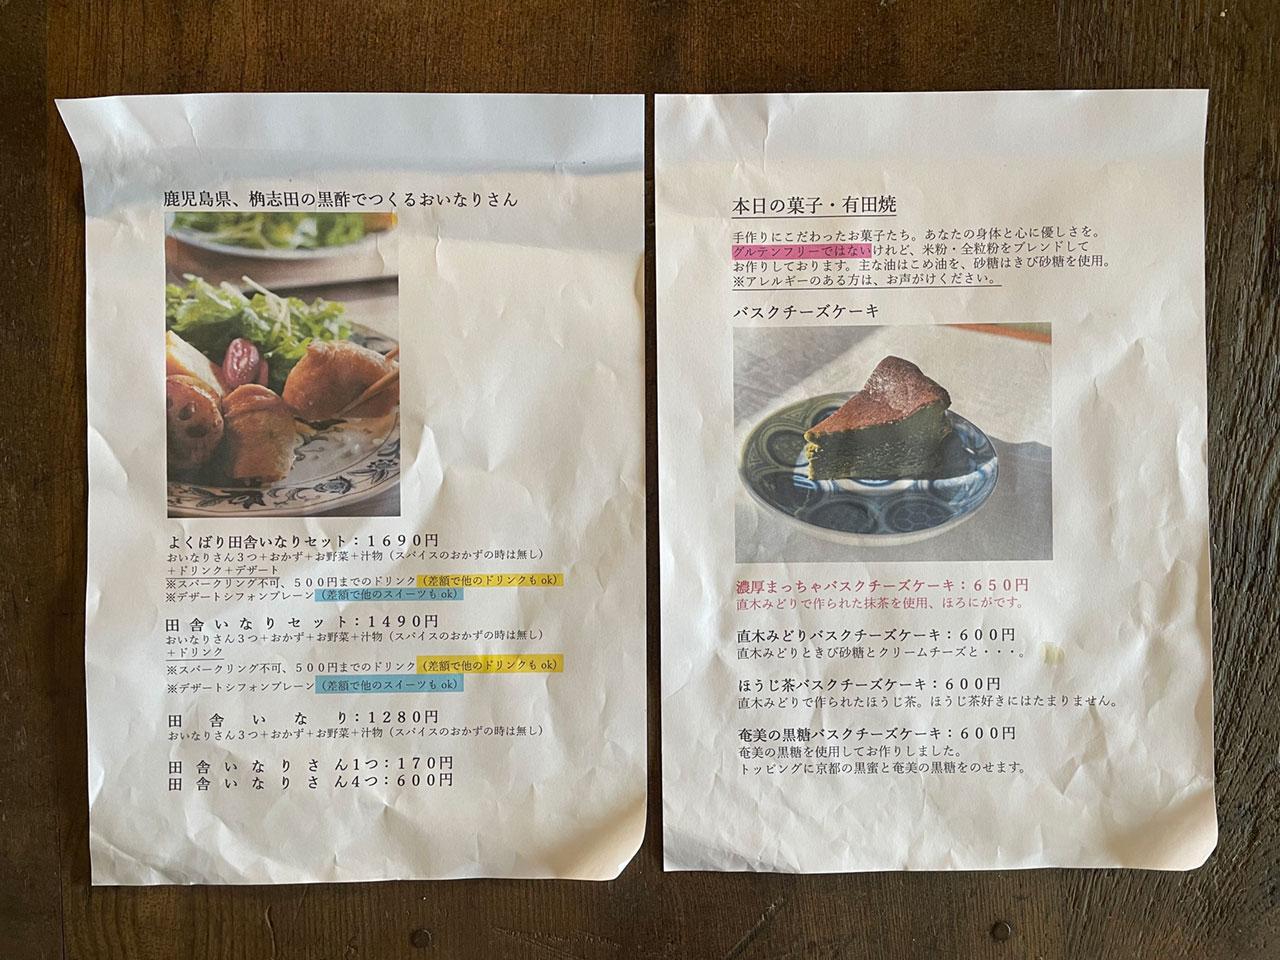 鹿児島県、桷志田の黒酢でつくるおいなりさん
よくばり田舎いなりセット：１６９０円
おいなりさん３つ＋おかず＋お野菜＋汁物（スパイスのおかずの時は無し）
＋ドリンク＋デザート
※スパークリング不可、５００円までのドリンク（差額で他のドリンクも ok）
※デザートシフォンプレーン（差額で他のスイーツも ok）
田舎いなりセット：１４９０円
おいなりさん３つ＋おかず＋お野菜＋汁物（スパイスのおかずの時は無し）
＋ドリンク
※スパークリング不可、５００円までのドリンク（差額で他のドリンクも ok）
※デザートシフォンプレーン（差額で他のスイーツも ok）
田舎いなり：１２８０円
おいなりさん３つ＋おかず＋お野菜＋汁物（スパイスのおかずの時は無し）
田舎いなりさん1つ：１７０円
田舎いなりさん4つ：６００円
本日の菓子・有田焼
手作りにこだわったお菓子たち。あなたの身体と心に優しさを。
グルテンフリーではないけれど、米粉・全粒粉をブレンドして
お作りしております。主な油はこめ油を、砂糖はきび砂糖を使用。
※アレルギーのある方は、お声がけください。
バスクチーズケーキ
濃厚まっちゃバスクチーズケーキ：６５０円
直木みどりで作られた抹茶を使用、ほろにがです。
直木みどりバスクチーズケーキ：６００円
直木みどりときび砂糖とクリームチーズと・・・。
ほうじ茶バスクチーズケーキ：６００円
直木みどりで作られたほうじ茶。ほうじ茶好きにはたまりません。
奄美の黒糖バスクチーズケーキ：６００円
奄美の黒糖を使用してお作りしました。
トッピングに京都の黒蜜と奄美の黒糖をのせます。